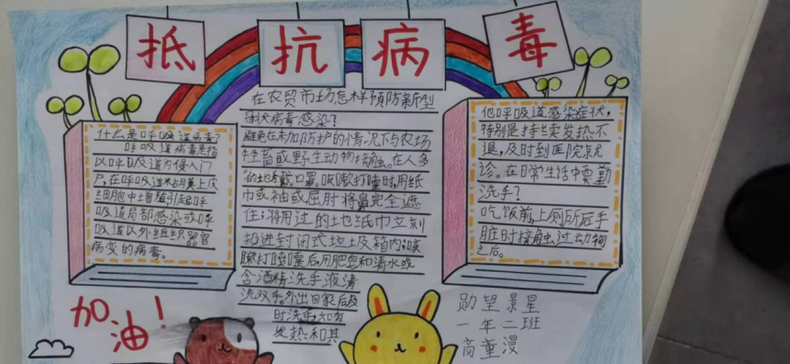 抵抗病毒
什么是呼吸道病毒?
呼吸道病毒是指
以呼吸道为侵入门
户,在呼吸道粘膜上皮
细胞中增殖引起呼
吸道局部感染或呼
吸道以外组织器官
病变的病毒。
在农贸市场怎样预防新型
冠状病毒感染?
避免在未加防护的情况下与农场
牲畜或野生动物接触。在人多
的地方戴口罩。咳嗽打嚏时,用纸
巾或袖或屈肘将鼻完全遮
住;将用过的地纸巾立刻
扔进封闭式垃圾箱内;咳
嗽打喷嚏后用肥皂和清水或
含酒精洗手液清
洗双手。外出回家后及
时洗手,如有
发热和其
他呼吸道感染症状,
特别是持续发热不
退,及时到医院就
诊。在日常生活中要勤
洗手?
吃饭前,上厕所后手
脏时接触过动物
之后。
加油!
勋望景星
一年二班
高童漫